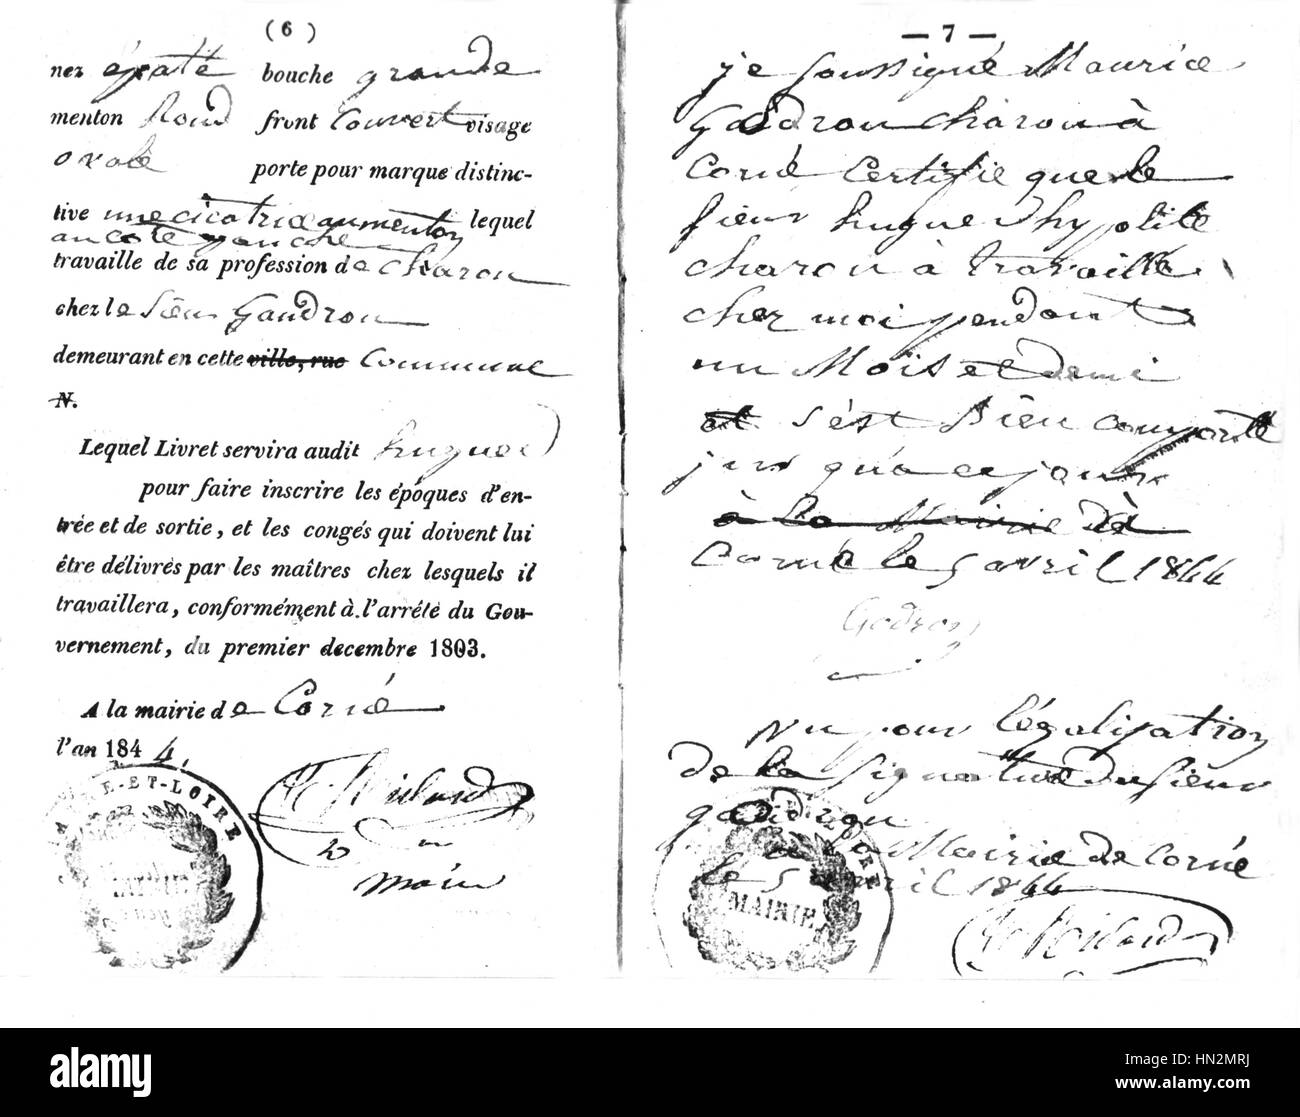 ( 6 )
nez épaté bouche grande
menton Rond front Couvert visage
ovale
porte pour marque distinc-
tive une cicatrice au menton lequel
au coté gauche
travaille de sa profession de charon
chez le Siêur Gaudron
demeurant en cette ville, rue Commune
N.
Lequel Livret servira audit hugue
pour faire inscrire les époques d'en-
trée et de sortie, et les congés qui doivent lui
être délivrés par les maîtres chez lesquels il
travaillera, conformément à l'arrêté du Gou-
vernement, du premier decembre 1803.
A la mairie de Corné
l'an 1844.
maire
ET-LOIRE
— 7 —
je soussigné Maurice
Gaudron charon à
Corné Certifie que le
sieur hugue hypolite
charon à travaillé
chez moi pendant
un Mois et demi
et s'est Biên comporté
jus qu'a ce jour
à la Mairie de
Corné le 5 avril 1844
Godron
Vu pour légalisation
de la signature du siêur
gaudron
Mairie de Corné
le 5 avril 1844
MAIRIE
alamy
Image ID: HN2MRJ
www.alamy.com